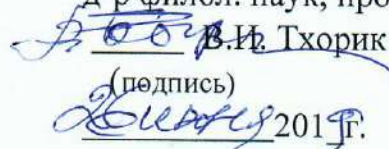 д-р филол. наук, про
В.И. Тхорик
(подпись)
26 июня 2019г.